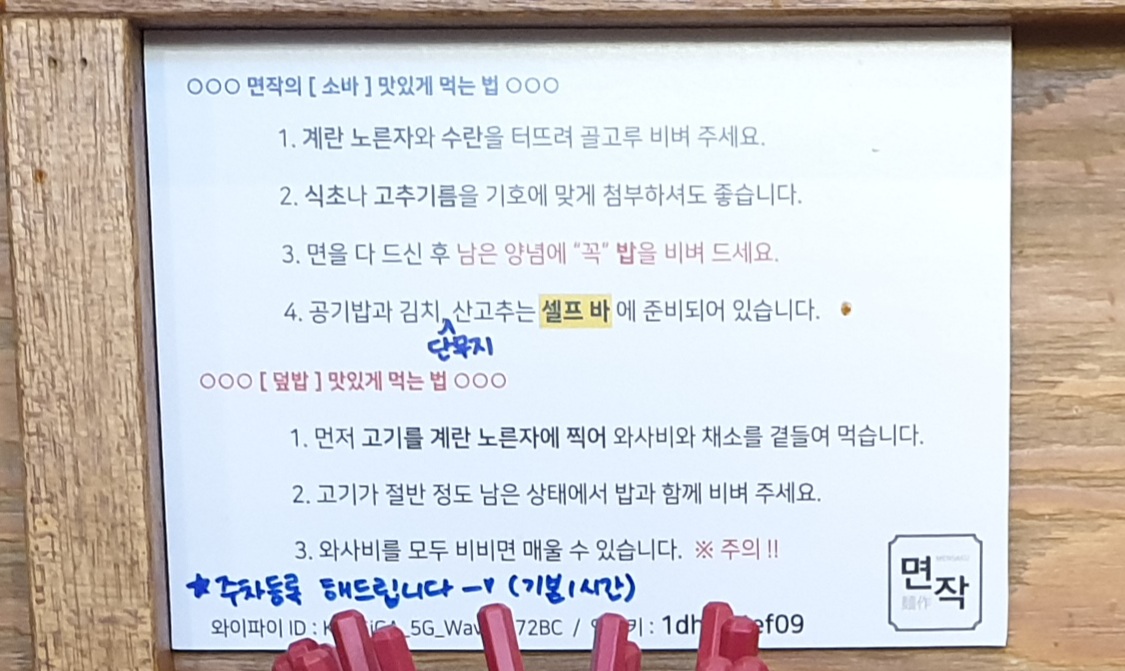 ○○○ 면작의 [ 소바 ] 맛있게 먹는 법 ○○○
1. 계란 노른자와 수란을 터뜨려 골고루 비벼 주세요.
2. 식초나 고추기름을 기호에 맞게 첨부하셔도 좋습니다.
3. 면을 다 드신 후 남은 양념에 "꼭" 밥을 비벼 드세요.
4. 공기밥과 김치, 산고추는 셀프 바 에 준비되어 있습니다.
단무지
○○○ [ 덮밥 ] 맛있게 먹는 법 ○○○
1. 먼저 고기를 계란 노른자에 찍어 와사비와 채소를 곁들여 먹습니다.
2. 고기가 절반 정도 남은 상태에서 밥과 함께 비벼 주세요.
3. 와사비를 모두 비비면 매울 수 있습니다. ※ 주의 !!
★주차등록 해드립니다 (기본1시간)
와이파이 ID : / :
면작
MENSAKU
麵作